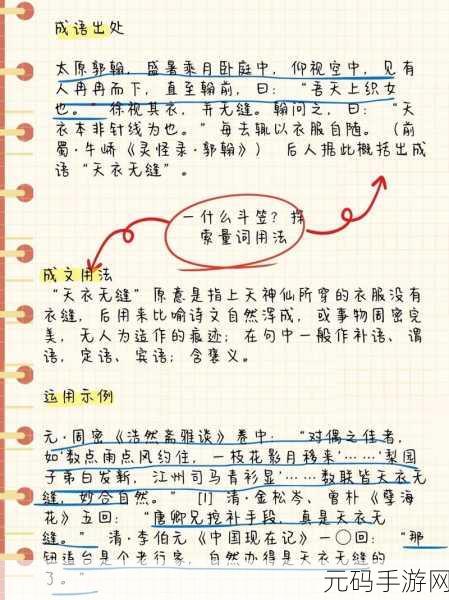 成语出处
太原郭翰，盛暑乘月卧庭中，仰视空中，见有
人冉冉而下，直至翰前，曰：“吾天上织女
也。”徐视其衣，并无缝。翰问之，曰：“天
衣本非针线为也。”每去辄以衣服自随。（前
蜀·牛峤《灵怪录·郭翰》）后人据此概括出成
语“天衣无缝”。
一什么斗笠？探
索量词用法
成文用法
“天衣无缝”原意是指上天神仙所穿的衣服没有
衣缝，后用来比喻诗文自然浑成，或事物周密完
美，无人为造作的痕迹；在句中一般作补语、谓
语、定语、宾语；含褒义。
运用示例
元·周密《浩然斋雅谈》卷中：“对偶之佳者，
如‘数点雨点风约住，一枝花影月移来’……‘梨园
子弟白发新，江州司马青衫显’……数联皆天衣无
缝，妙合自然。”[1] 清·金松岑、曾朴《孽海
花》五回：“唐卿兄挖补手段，真是天衣无
缝。” 清·李伯元《中国现在记》一〇回：“那
钮道台是个老行家，自然办得是天衣无缝的
了。”
元码手游网